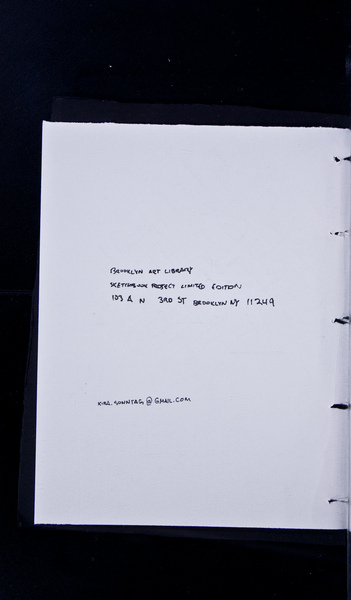 BROOKLYN ART LIBRARY
SKETCHBOOK PROJECT LIMITED EDITION
103 A N 3RD ST BROOKLYN NY 11249
@GMAIL.COM